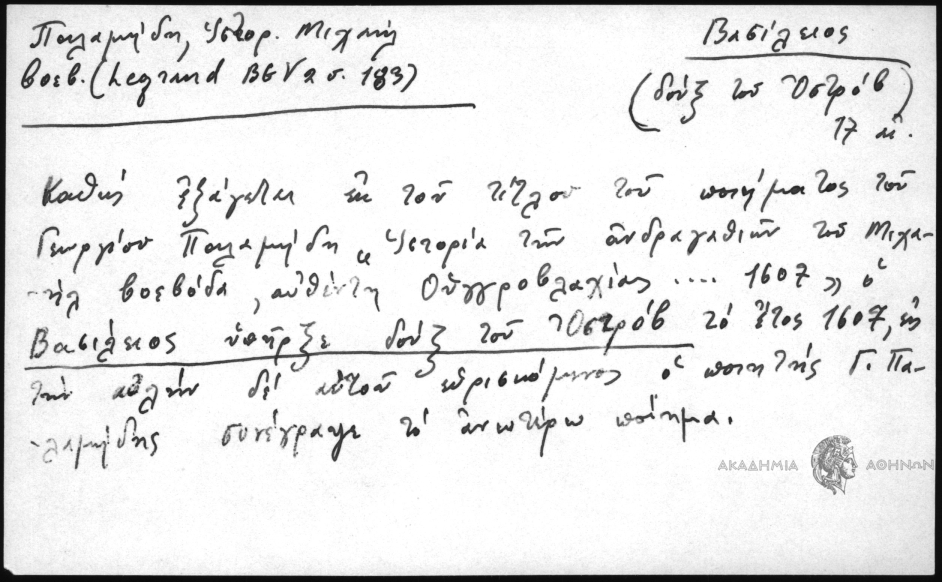 Παλαμήδη, Ἱστορ. Μιχαὴλ
βοεβ. (Legrand BGV 2 σ. 183)
Βασίλειος
(δοὺξ τοῦ Ὀστρὸβ)
17 αἰ.
Καθὼς ἐξάγεται ἐκ τοῦ τίτλου τοῦ ποιήματος τοῦ
Γεωργίου Παλαμήδη "Ἱστορία τῶν ἀνδραγαθιῶν τοῦ Μιχα-
-ὴλ βοεβόδα, αὐθέντη Οὑγγροβλαχίας .... 1607" ὁ
Βασίλειος ὑπῆρξε δοὺξ τοῦ Ὀστρὸβ τὸ ἔτος 1607, εἰς
τὴν αὐλὴν δὲ αὐτοῦ εὑρισκόμενος ὁ ποιητὴς Γ. Πα-
-λαμήδης συνέγραψε τὸ ἀνωτέρω ποίημα.
ΑΚΑΔΗΜΙΑ ΑΘΗΝΩΝ